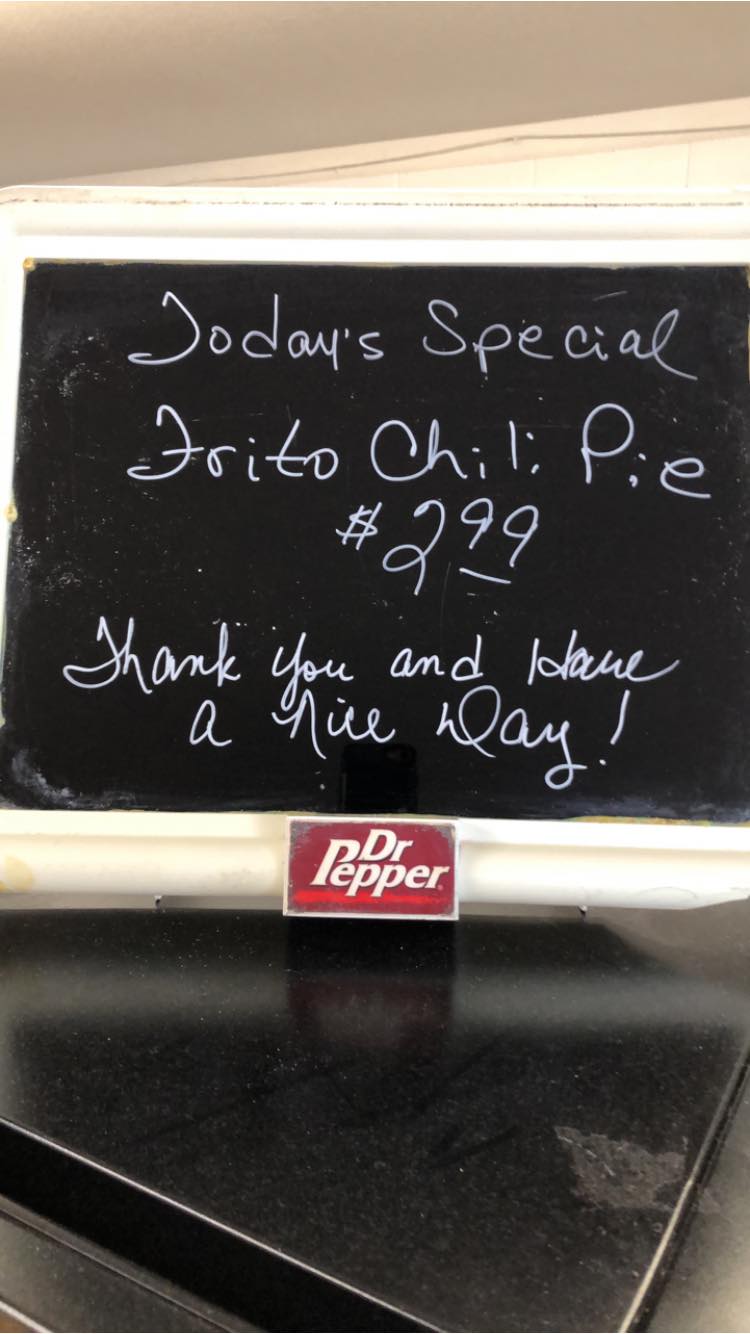 Today's Special
Frito Chili Pie
$2.99
Thank you and Have
a Nice Day!
Dr
Pepper